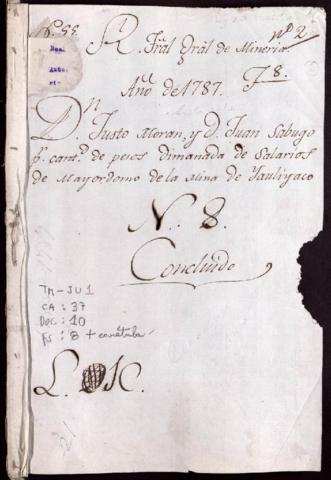 Nº 2
R. Trãl Grãl de Mineria
Año de 1787.
8.
Dn Justo Moran, y D. Juan Sabugo
pr. cantd. de pesos dimanada de Salarios
de Mayordomo de la Mina de Yauliyaco
N. 8.
Concluido
TM-JU 1
CA : 37
DOC : 10
fs : 8 + carátula
L.